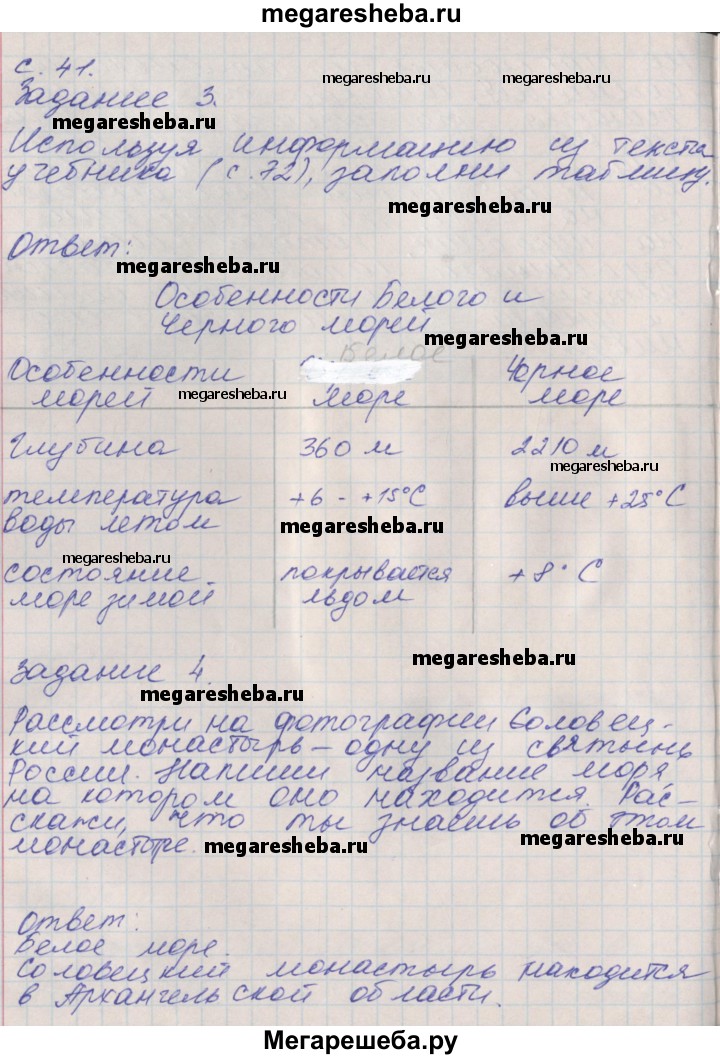 megaresheba.ru
с. 41.
megaresheba.ru megaresheba.ru
Задание 3.
megaresheba.ru
Используя информацию из текста
учебника (с.72), заполни таблицу.
megaresheba.ru
Ответ:
megaresheba.ru
Особенности Белого и
Черного морей
megaresheba.ru
Особенности Белое Чорное
морей megaresheba.ru море море
Глубина 360 м 2210 м
megaresheba.ru
температура +6 - +15°С выше +25°С
воды летом megaresheba.ru
megaresheba.ru
состояние покрывается +8°С
море зимой льдом
megaresheba.ru
Задание 4.
megaresheba.ru
Рассмотри на фотографии Соловец-
кий монастырь – одну из святынь
России. Напиши название моря
на котором оно находится. Рас-
скажи, что ты знаешь об этом
монастыре. megaresheba.ru megaresheba.ru
ответ:
Белое море.
Соловецкий монастырь находится
в Архангельской области.
Мегарешеба.ру